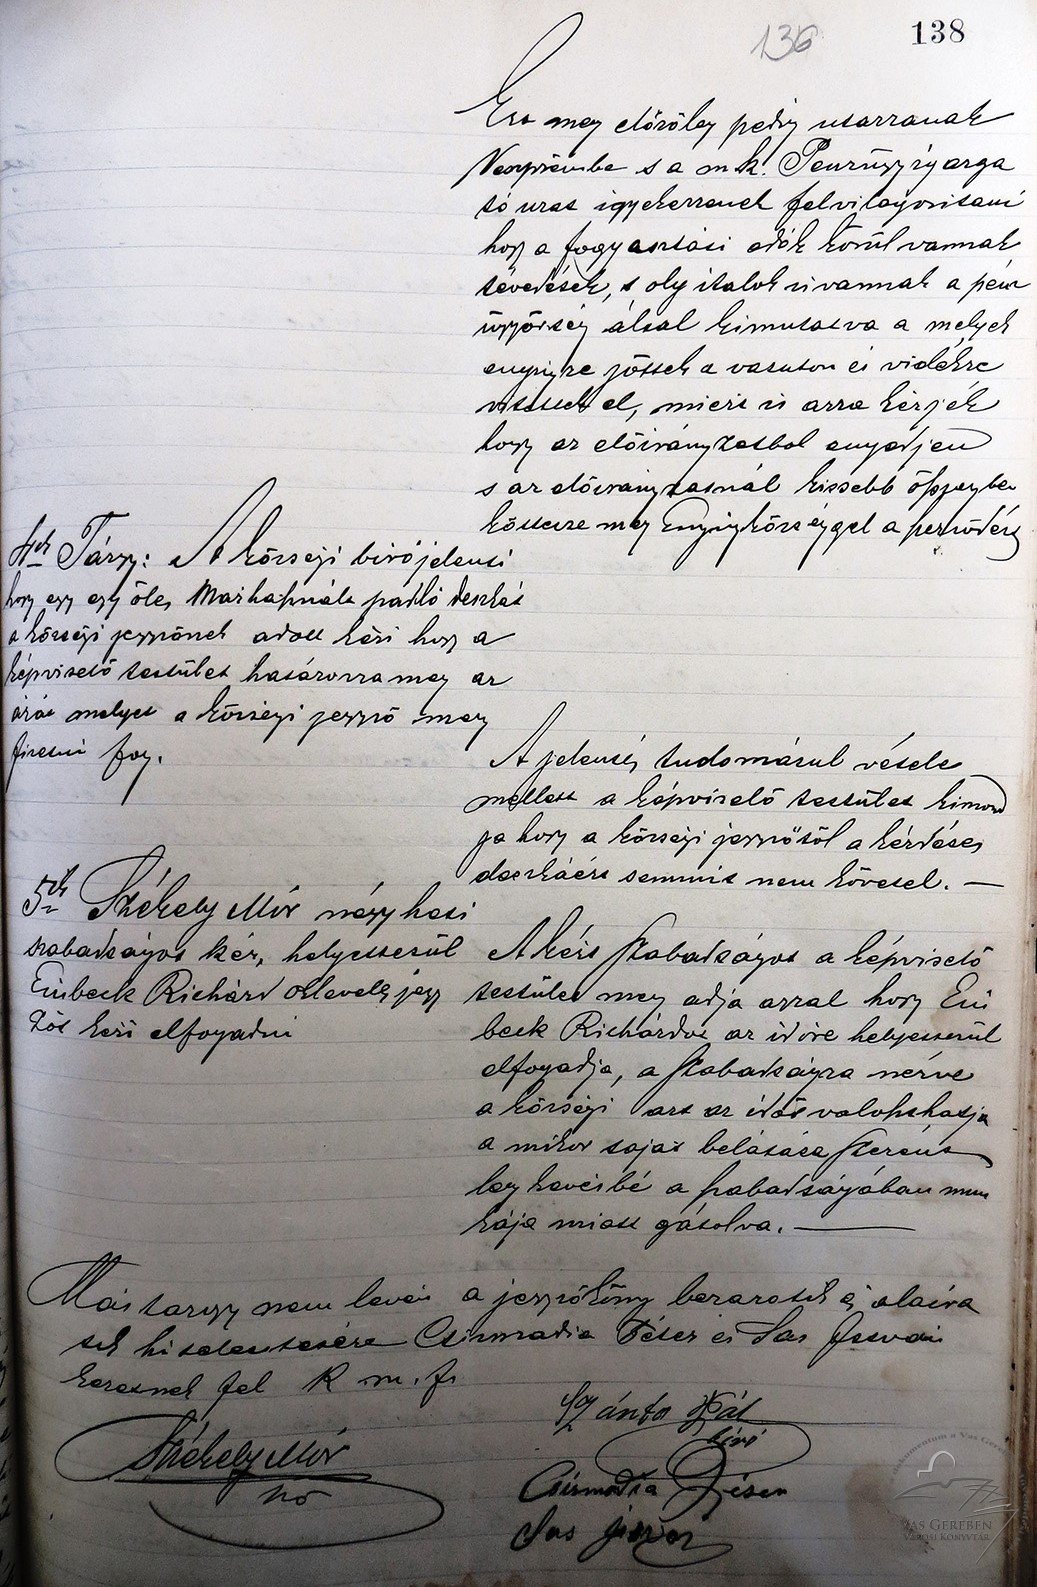 136
138
Ezt meg előzőleg pedig utazzanak
Veszprémbe s a m. k. Pénzügyigazga
tó urat igyekezzenek felvilágositani
hogy a fogyasztási adók körül vannak
tévedések, s oly italok is vannak a pénz
ügyőrség által kimutatva a melyek
ennyire jöttek a vasuton és vidékre
vitettek el, miért is arra kérjék
hogy az előirányzatból engedjen
s az előirányzatnál kissebb öszegben
kössene meg Enying községgel a szerződést
4ik Tárgy: A községi biró jelenti
hogy egy egy öles Marhahidnak padló deszkát
a községi jegyzőnek adott kéri hogy a
képviselő testület határozza meg az
árát melyet a községi jegyző meg
fizetni fog.
A jelentés tudomásul vétele
mellett a képviselő testület kimond
ja hogy a községi jegyzőtől a kérdéses
deszkáért semmit nem követel. —
5ik Székely Mór négy heti
szabadságot kér, helyettesül
Einbeck Richárd okleveles jegy
zőt kéri elfogadni
A kért szabadságot a képviselő
testület meg adja azzal hogy Ein
beck Richárdot az időre helyettesül
elfogadja, a szabadságra nézve
a községi azt az időt választhatja
a mikor saját belátása szerint
legkevésbé a szabadságában mun
kája miatt gátolva. —
Más tárgy nem lévén a jegyzőköny bezáratott és aláíra
tott hitelesitésére Csizmadia Péter és Sas István
kéretnek fel K. m. f.
Székely Mór
Szántó Pál
biró
Csizmadia Péter
Sas István
Vas Gereben
Városi Könyvtár